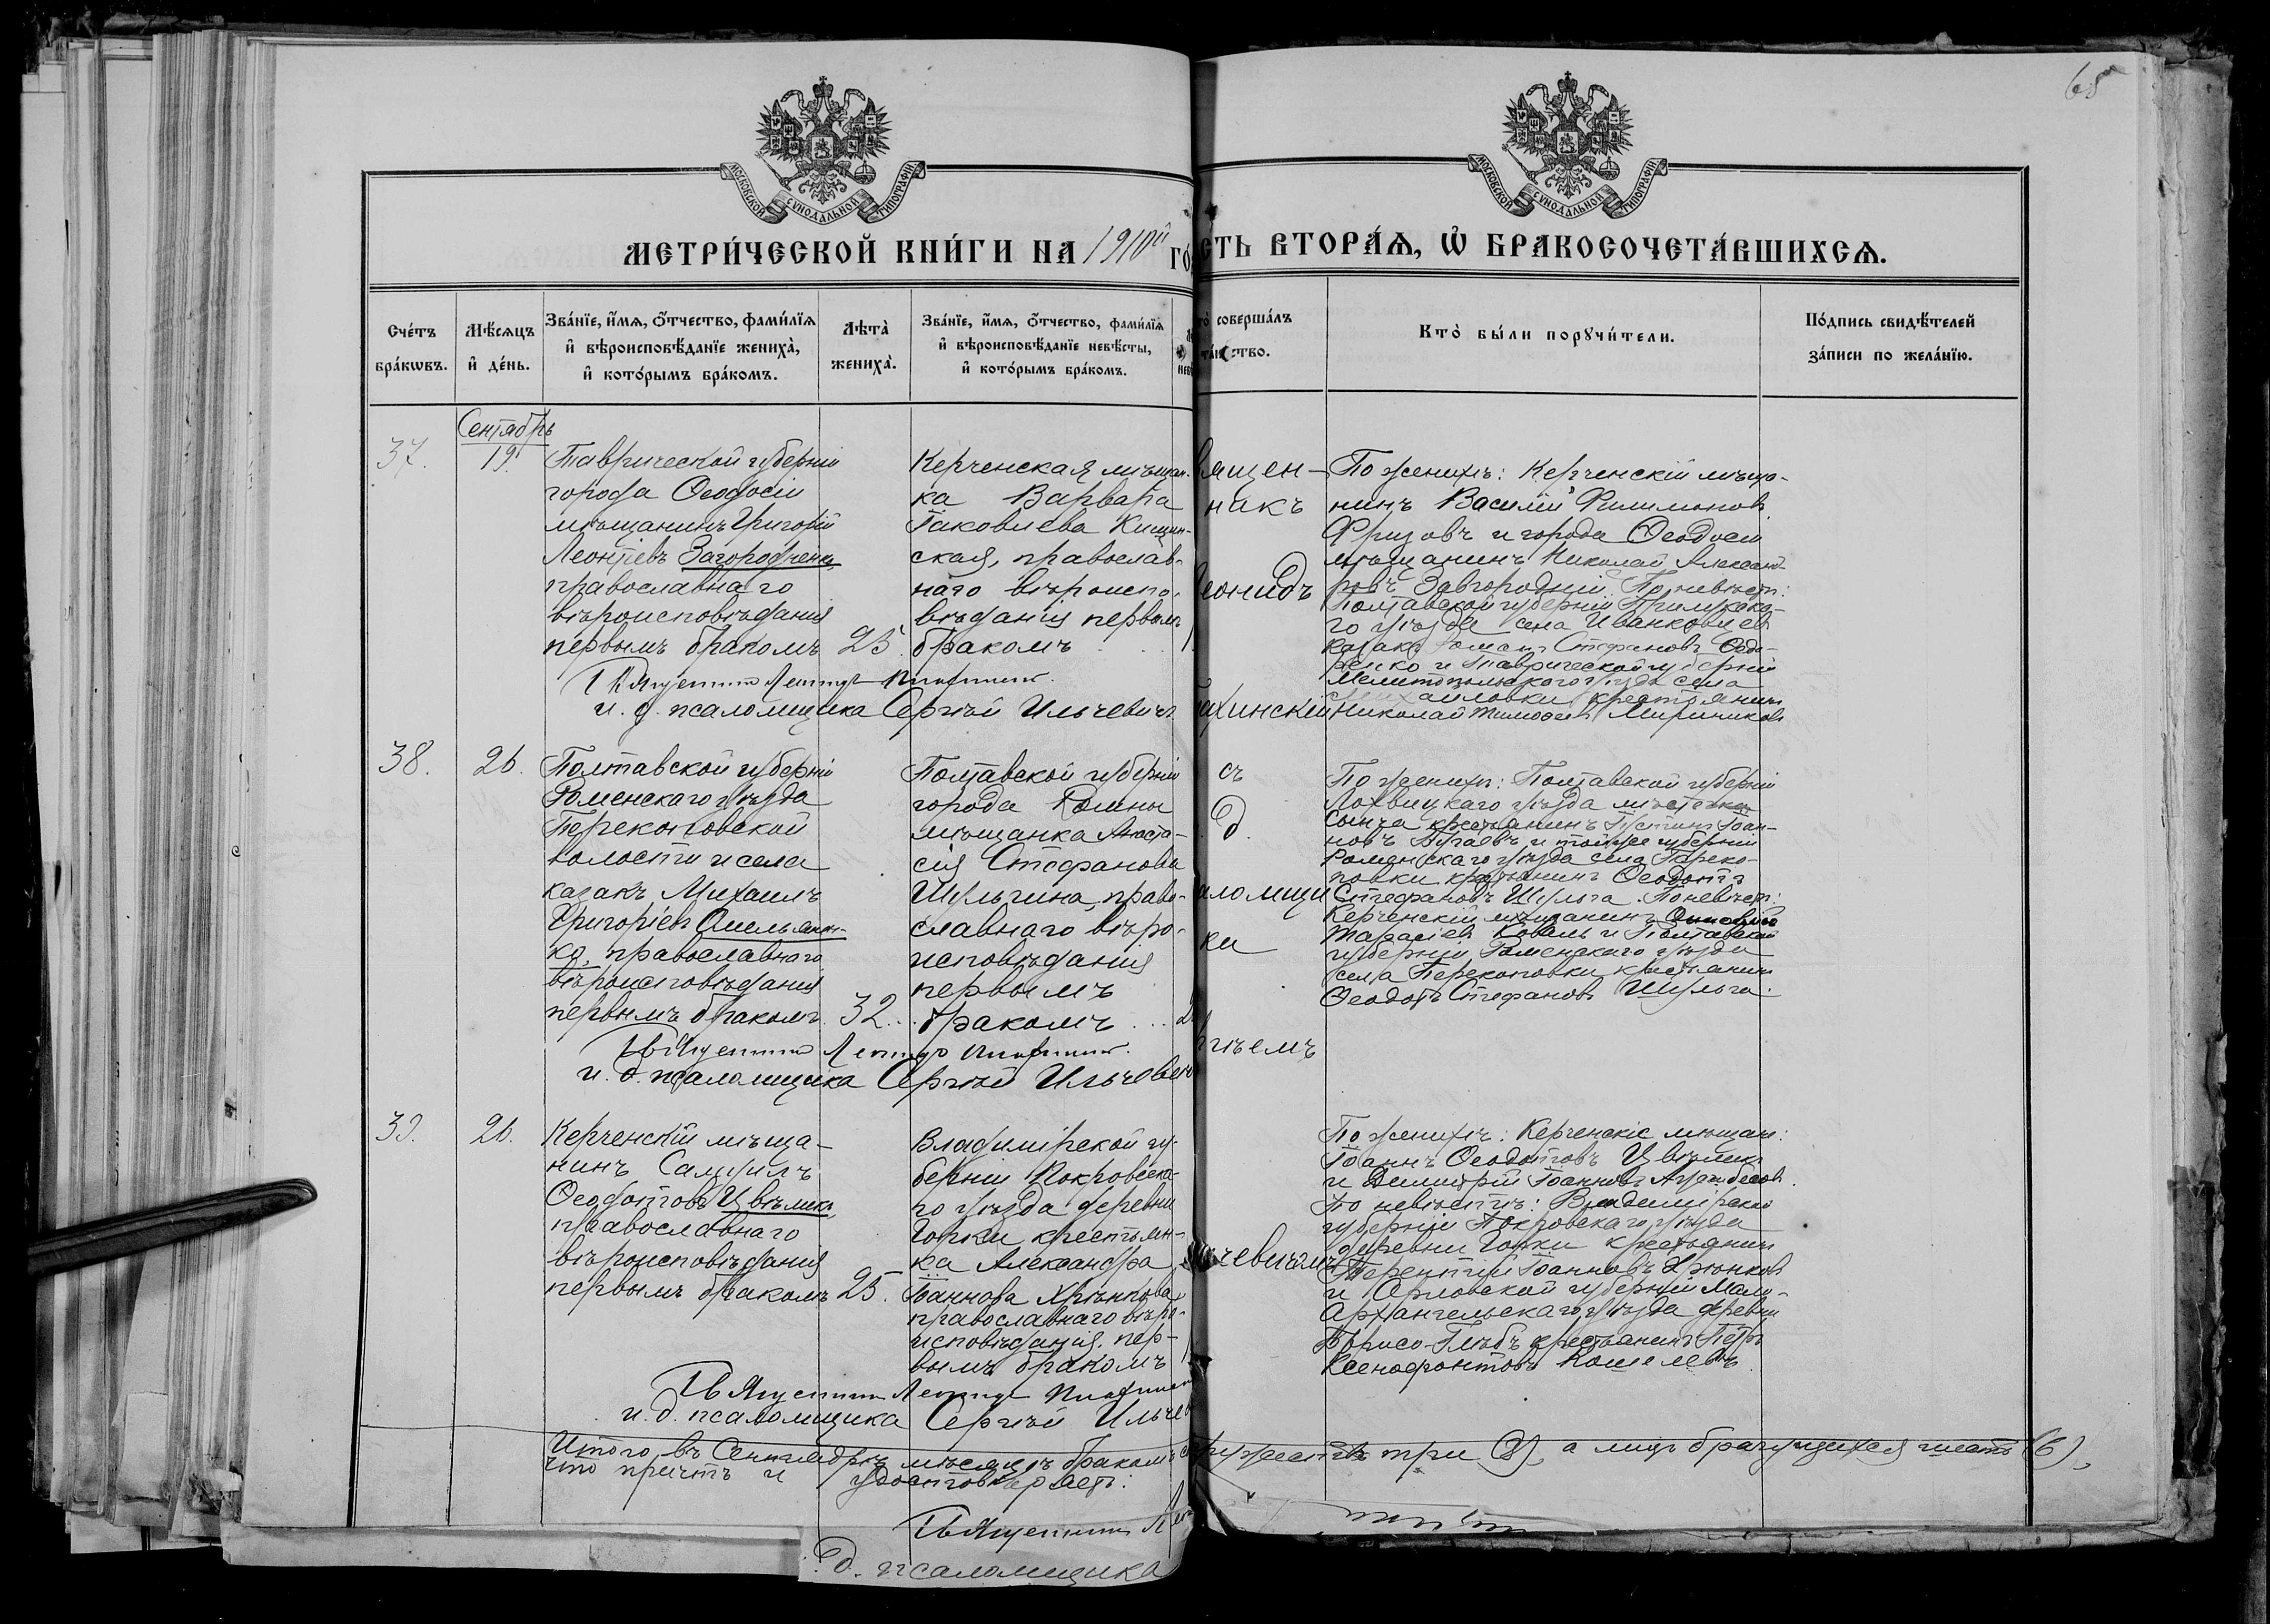 65
МОСКОВСКОЙ СѴНОДАЛЬНОЙ ТИПОГРАФІИ
МОСКОВСКОЙ СѴНОДАЛЬНОЙ ТИПОГРАФІИ
МЕТРИ́ЧЕСКОЙ КНИ́ГИ НА 1910й ГО
СТЬ ВТОРА́Я, Ѽ БРАКОСОЧЕТА́ВШИХСЯ.
Сче́тъ бра́кωвъ.
Мѣ́сяцъ и҆ де́нь.
Зва́нїе, и҆́мя, о҆́тчество, фами́лїя
и҆ вѣроисповѣ́данїе жениха̀,
и҆ кото́рымъ бра́комъ.
Лѣта̀ жениха̀.
Зва́нїе, и҆́мя, о҆́тчество, фами́лїя
и҆ вѣроисповѣ́данїе невѣ́сты,
и҆ кото́рымъ бра́комъ.
то̀ соверша́лъ
та́и ство.
Кто̀ бы́ли порꙋчи́тели.
По́дпись свидѣ́телей
за́писи по жела́нїю.
Сентябрь
37.
19.
Таврической губерніи
города Ѳеодосіи
мѣщанинъ Григорій
Леонтіевъ Загородченко,
православнаго
вѣроисповѣданія
первымъ бракомъ
25.
Керченская мѣщан-
ка Варвара
Іаковлева Кищин-
ская, православ-
наго вѣроиспо-
вѣданія первымъ
бракомъ
Священникъ Леонидъ
и. д. псаломщика Сергѣй Ильчевичъ
вящен-
никъ
еонидъ
инскій
По женихѣ: Керченскій мѣща-
нинъ Василій Филимоновъ
Фризовъ и города Ѳеодосіи
мѣщанинъ Николай Александ-
ровъ Завгородній. По невѣстѣ:
Полтавской губерніи Прилукска-
го уѣзда села Иванковцевъ
казакъ Романъ Стефановъ
и Таврической губерніи
Мелитопольскаго уѣзда села
Михайловки крестьянинъ
Николай Тимофеевъ Мирошниковъ
38.
26.
Полтавской губерніи
Роменскаго уѣзда
Перекоповской
волости и села
казакъ Михаилъ
Григоріевъ Омельянен-
ко, православнаго
вѣроисповѣданія
первымъ бракомъ
32.
Полтавской губерніи
города Ромны
мѣщанка Анаста-
сія Стефанова
Шульгина, право-
славнаго вѣро-
исповѣданія
первымъ
бракомъ
Священникъ Леонидъ
и. д. псаломщика Сергѣй Ильчевичъ
съ
д.
аломщи
ка
гѣемъ
По женихѣ: Полтавской губерніи
Лохвицкаго уѣзда мѣстечка
Сенча крестьянинъ Іоан-
новъ Бугаевъ и той же губерніи
Роменскаго уѣзда села Переко-
повки крестьянинъ Ѳеодотъ
Стефановъ Шульга. По невѣстѣ:
Керченскій мѣщанинъ
Тарасіевъ Коваль и Полтавской
губерніи Роменскаго уѣзда
села Перекоповки крестьянинъ
Ѳеодотъ Стефановъ Шульга.
39.
26.
Керченскій мѣща-
нинъ Самуилъ
Ѳеодотовъ Цвѣлекъ,
православнаго
вѣроисповѣданія
первымъ бракомъ
25.
Владимірской гу-
берніи Покровска-
го уѣзда деревни
Горки крестьян-
ка Александра
Іоаннова Хрѣнкова,
православнаго вѣро-
исповѣданія, пер-
вымъ бракомъ
Священникъ Леонидъ
и. д. псаломщика Сергѣй Ильчев
чевичемъ
По женихѣ: Керченскіе мѣщане:
Іоаннъ Ѳеодотовъ Цвѣлекъ
и Димитрій Іоанновъ
По невѣстѣ: Владимірской
губерніи Покровскаго уѣзда
деревни Горки крестьянинъ
Терентій Іоанновъ Хрѣнковъ
и Орловской губерніи Мало-
Архангельскаго уѣзда деревни
Борисо-Глѣбъ крестьянинъ Петръ
Ксенофонтовъ Кошелевъ.
Итого въ Сентябрѣ мѣсяцѣ бракомъ с
ружествъ три (3), а лицъ брачущихся шесть (6),
что причтъ и удостовѣряетъ:
Священникъ Леон
д. псаломщика